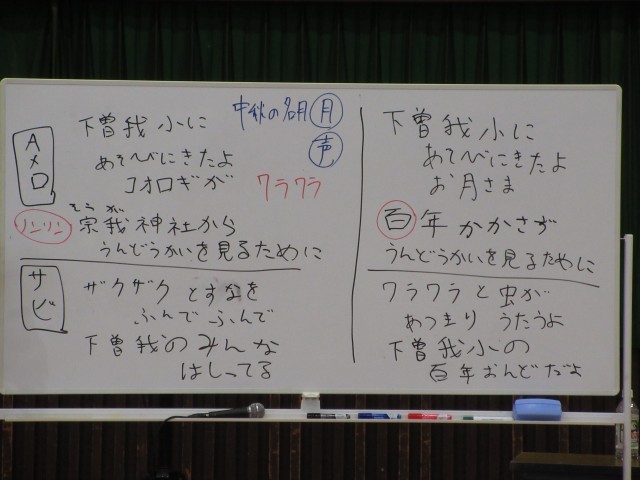 中秋の名月 月
声
Aメロ
下曽我小に
あそびにきたよ
コオロギが
ワラワラ
リンリン
そうが
宗我神社から
うんどうかいを見るために
サビ
ザクザクとすなを
ふんでふんで
下曽我のみんな
はしってる
下曽我小に
あそびにきたよ
お月さま
百年かかさず
うんどうかいを見るために
ワラワラと虫が
あつまりうたうよ
下曽我小の
百年おんどだよ